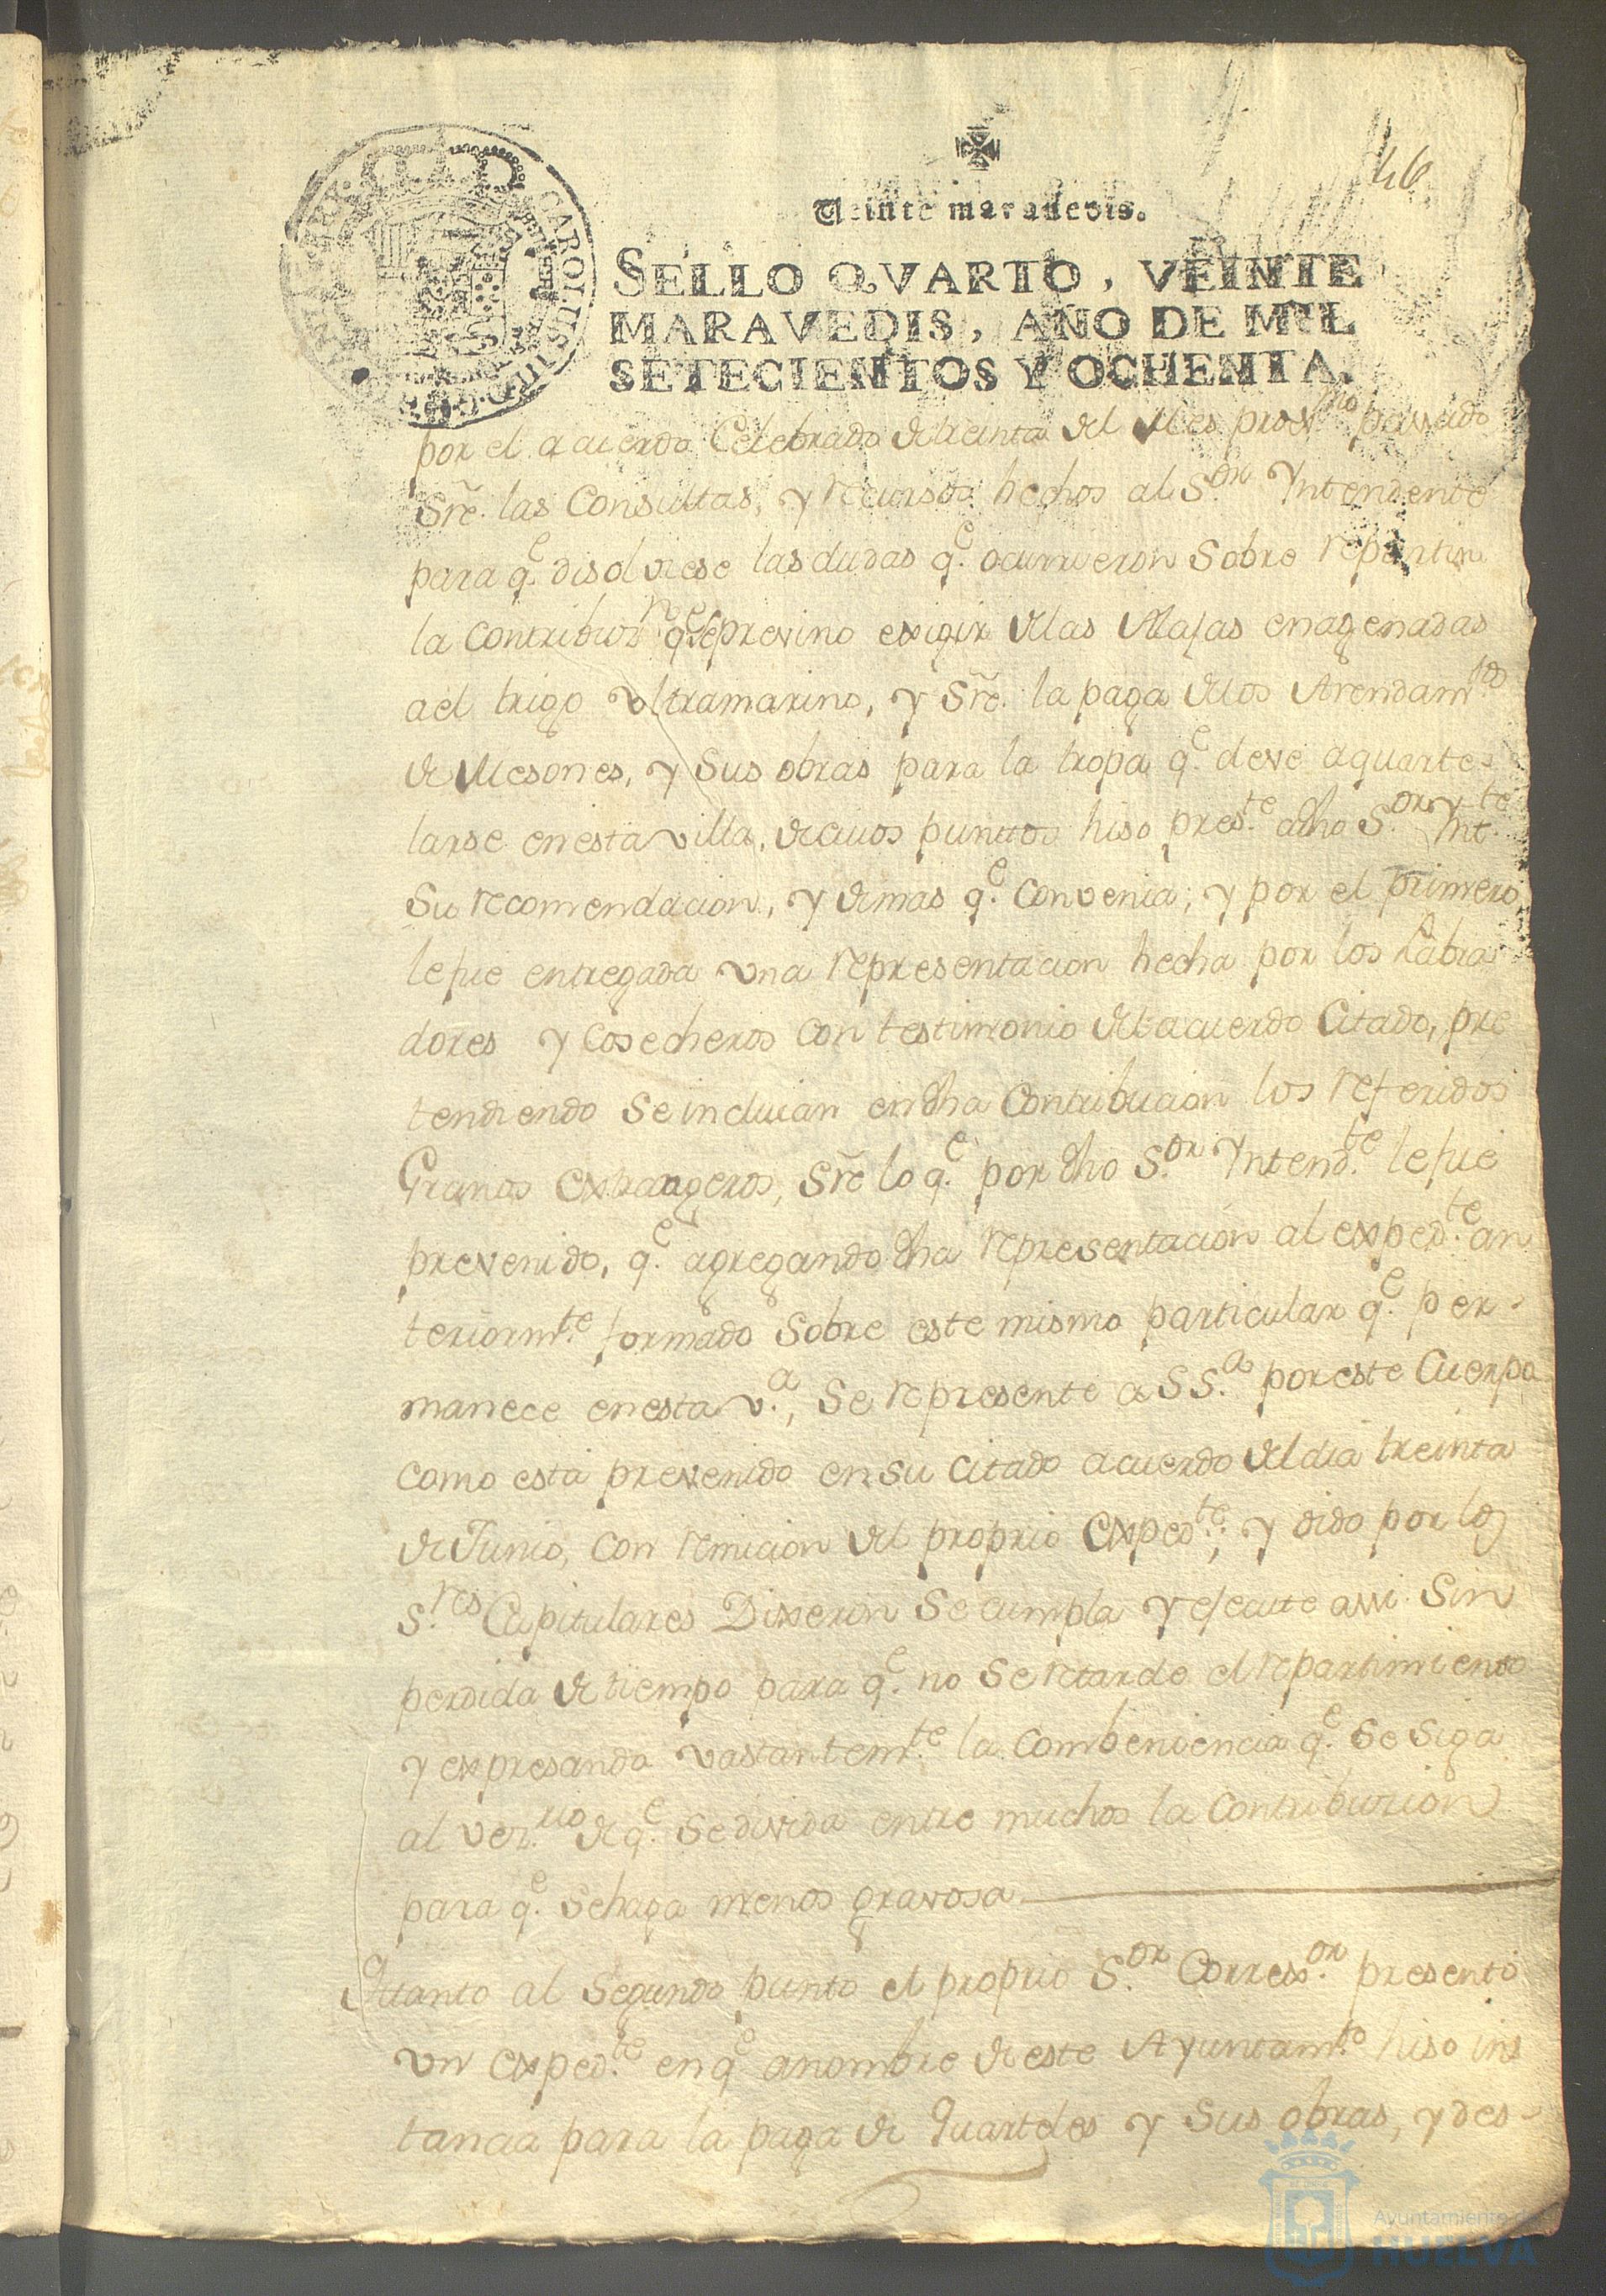 46
Veinte maravedis.
SELLO QVARTO, VEINTE
MARAVEDIS, AÑO DE MIL
SETECIENTOS Y OCHENTA.
CAROLUS III D G
por el acuerdo Celebrado de treinta del Mes proxmo passado
Sre. las Consultas, y recursos hechos al S.or Yntendente
para q.e disolviese las dudas q.e ocurrieron Sobre repartir
la Contribuzn q.e se previno exigir de las Alajas enagenadas
ael trigo vltramarino, y Sre. la paga de los Arendamtos
de Mesones, y Sus obras para la tropa q.e deve aquarte-
larse en esta villa, de cuios punttos hiso pres.te adho S.or Ynt.te
Su recomendacion, y demas q.e Convenia; y por el primero
le fue entregada vna representacion hecha por los Labra
dores y Cosecheros con testimonio del acuerdo Citado, pre
tendiendo se incluian en dha Contribucion los referidos
Granos extrangeros, Sre lo q.e por dho S.or Yntend.te le fue
prevenido, q.e agregando dha representacion al exped.te an
teriorm.te formado Sobre este mismo particular q.e per-
manece en esta v.a, Se represente a S S.a por este Cuerpo
como esta prevenido en su citado acuerdo del dia treinta
de Junio, con remicion del proprio exped.te; y oido por los
S.res Capitulares Dixeron Se cumpla y ejecute assi Sin
perdida de tiempo para q.e no Se retarde el repartimiento
y expresando vastantem.te la Combeniencia q.e Se Siga
al vez.rio de q.e Se divida entre muchos la Contribuzion
para q.e sehaga menos gravosa.
Qtanto al Segundo punto el proprio S.or Corres.or presentó
vn exped.te en q.e anombre de este Ayuntam.to hiso ins
tancia para la paga de Quarteles y Sus obras, y des-
Ayuntamiento de
HUELVA